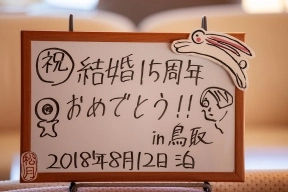 祝 結婚15周年
おめでとう!!
in鳥取
2018年8月12日 泊
松月